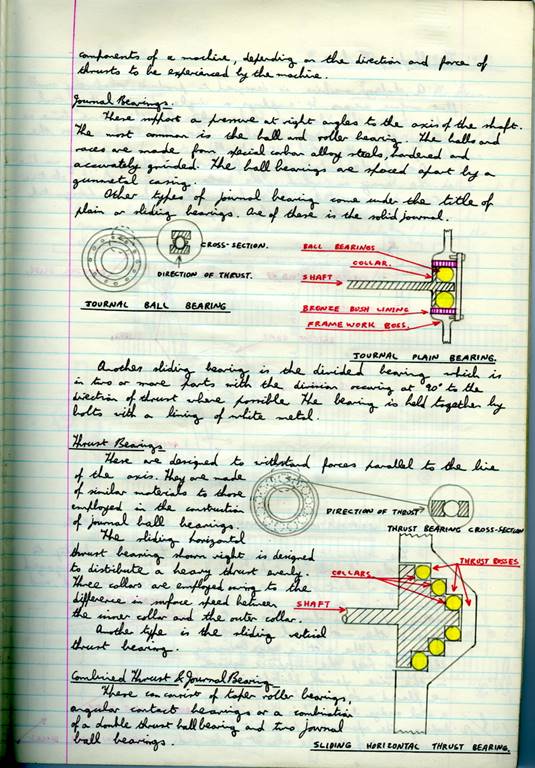 components of a machine, depending on the direction and force of
thrusts to be experienced by the machine.
Journal Bearings.
These support a pressure at right angles to the axis of the shaft.
The most common is the ball and roller bearing. The balls and
races are made from special carbon alloy steels, hardened and
accurately grinded. The ball bearings are spaced apart by a
gunmetal casing.
Other types of journal bearing come under the title of
plain or sliding bearings. One of these is the solid journal.
CROSS-SECTION.
DIRECTION OF THRUST.
JOURNAL BALL BEARING
BALL BEARINGS
COLLAR.
SHAFT
BRONZE BUSH LINING
FRAMEWORK BOSS.
JOURNAL PLAIN BEARING.
Another sliding bearing is the divided bearing which is
in two or more parts with the division occuring at 90° to the
direction of thrust where possible. The bearing is held together by
bolts with a lining of white metal.
Thrust Bearings
These are designed to withstand forces parallel to the line
of the axis. They are made
of similar materials to those
employed in the construction
of journal ball bearings.
The sliding horizontal
thrust bearing shown right is designed
to distribute a heavy thrust evenly.
Three collars are employed owing to the
difference in surface speed between
the inner collar and the outer collar.
Another type is the sliding vertical
thrust bearing.
DIRECTION OF THRUST
THRUST BEARING CROSS-SECTION
COLLARS
THRUST BOSSES
SHAFT
Combined Thrust & Journal Bearing
These can consist of taper roller bearings,
angular contact bearings or a combination
of a double thrust ball bearing and two journal
ball bearings.
SLIDING HORIZONTAL THRUST BEARING.